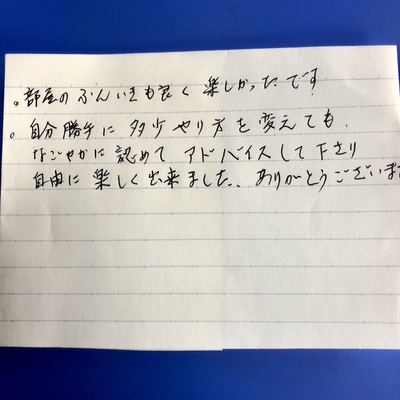 。部屋のふんいきも良く 楽しかったです
。自分勝手に 多少やり方を変えても、
なごやかに認めて アドバイスして下さり
自由に楽しく出来ました。ありがとうございま